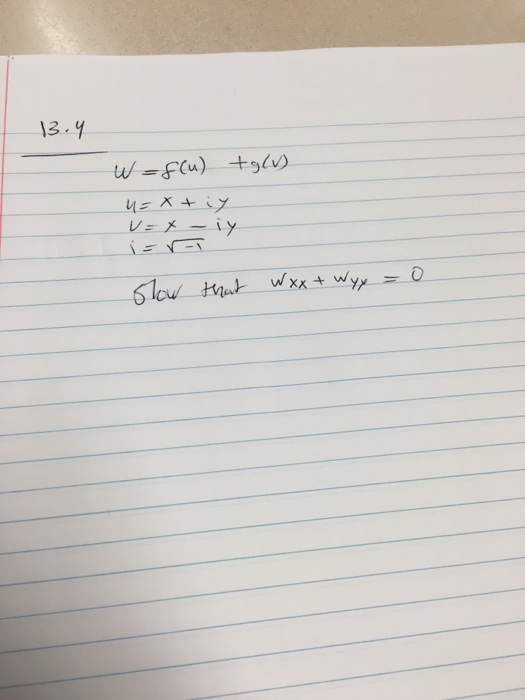 13.4
w = f(u) + g(v)
u = x + iy
v = x - iy
i = √-1
Show that Wxx + Wyy = 0